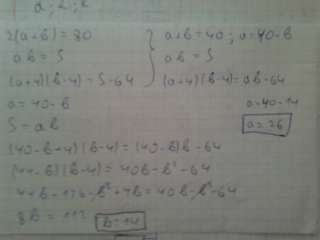 2(a+b)=80 } a+b=40; a=40-b
ab=S ab=S
(a+4)(b-4)=S-64 (a+4)(b-4)=ab-64
a=40-b a=40-14
S=ab a=26
(40-b+4)(b-4)=(40-b)b-64
(44-b)(b-4)=40b-b²-64
44b-176-b²+4b=40b-b²-64
8b=112 b=14